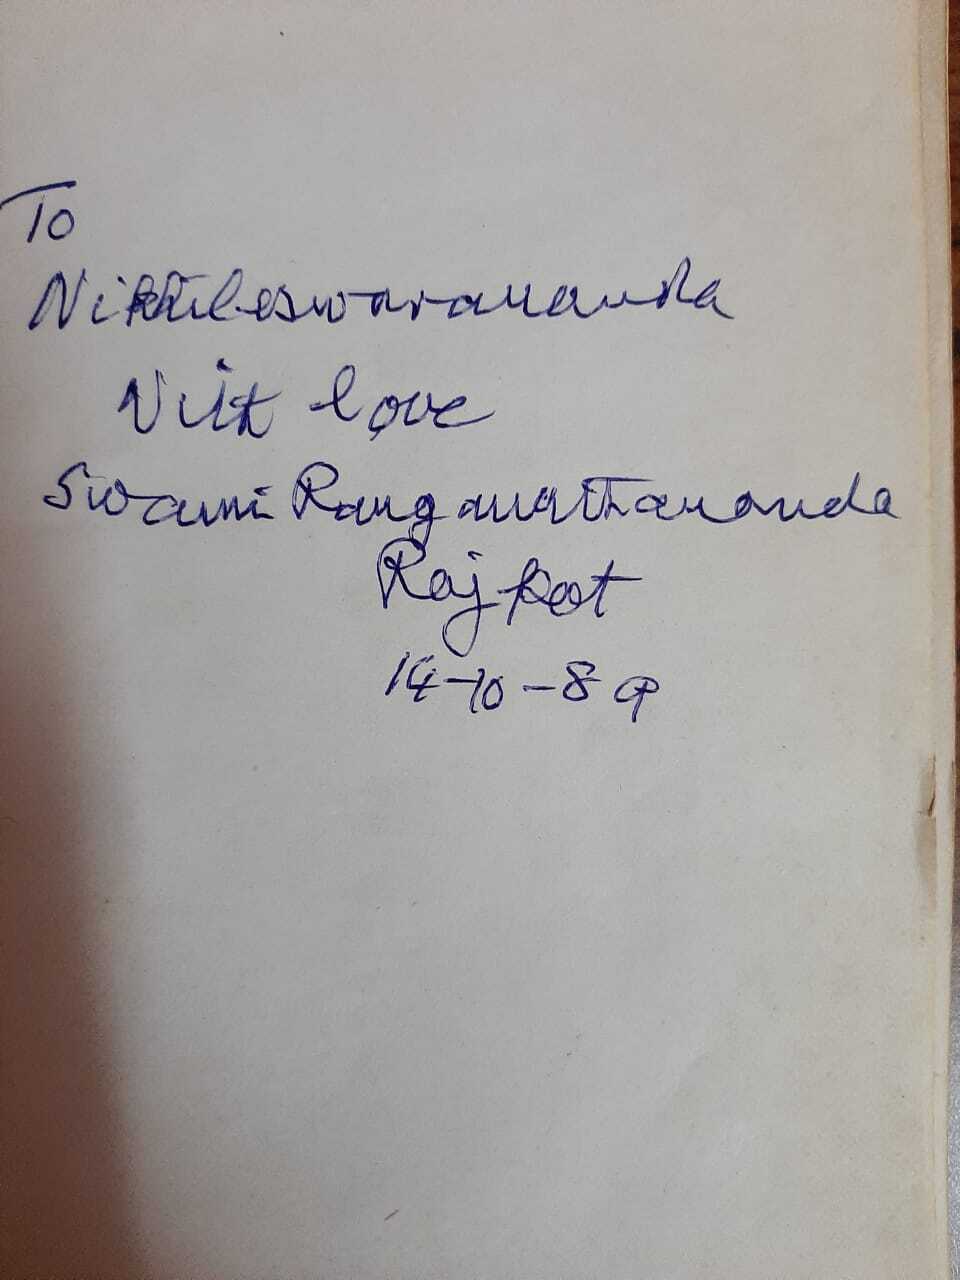 To
Nikhileswarananda
With love
Swami Ranganathananda
Rajkot
14-10-89